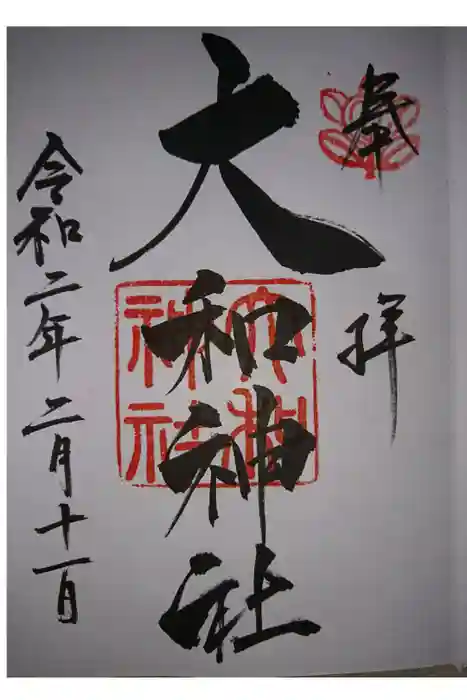 奉拝
大和神社
大和神社
令和二年二月十一日